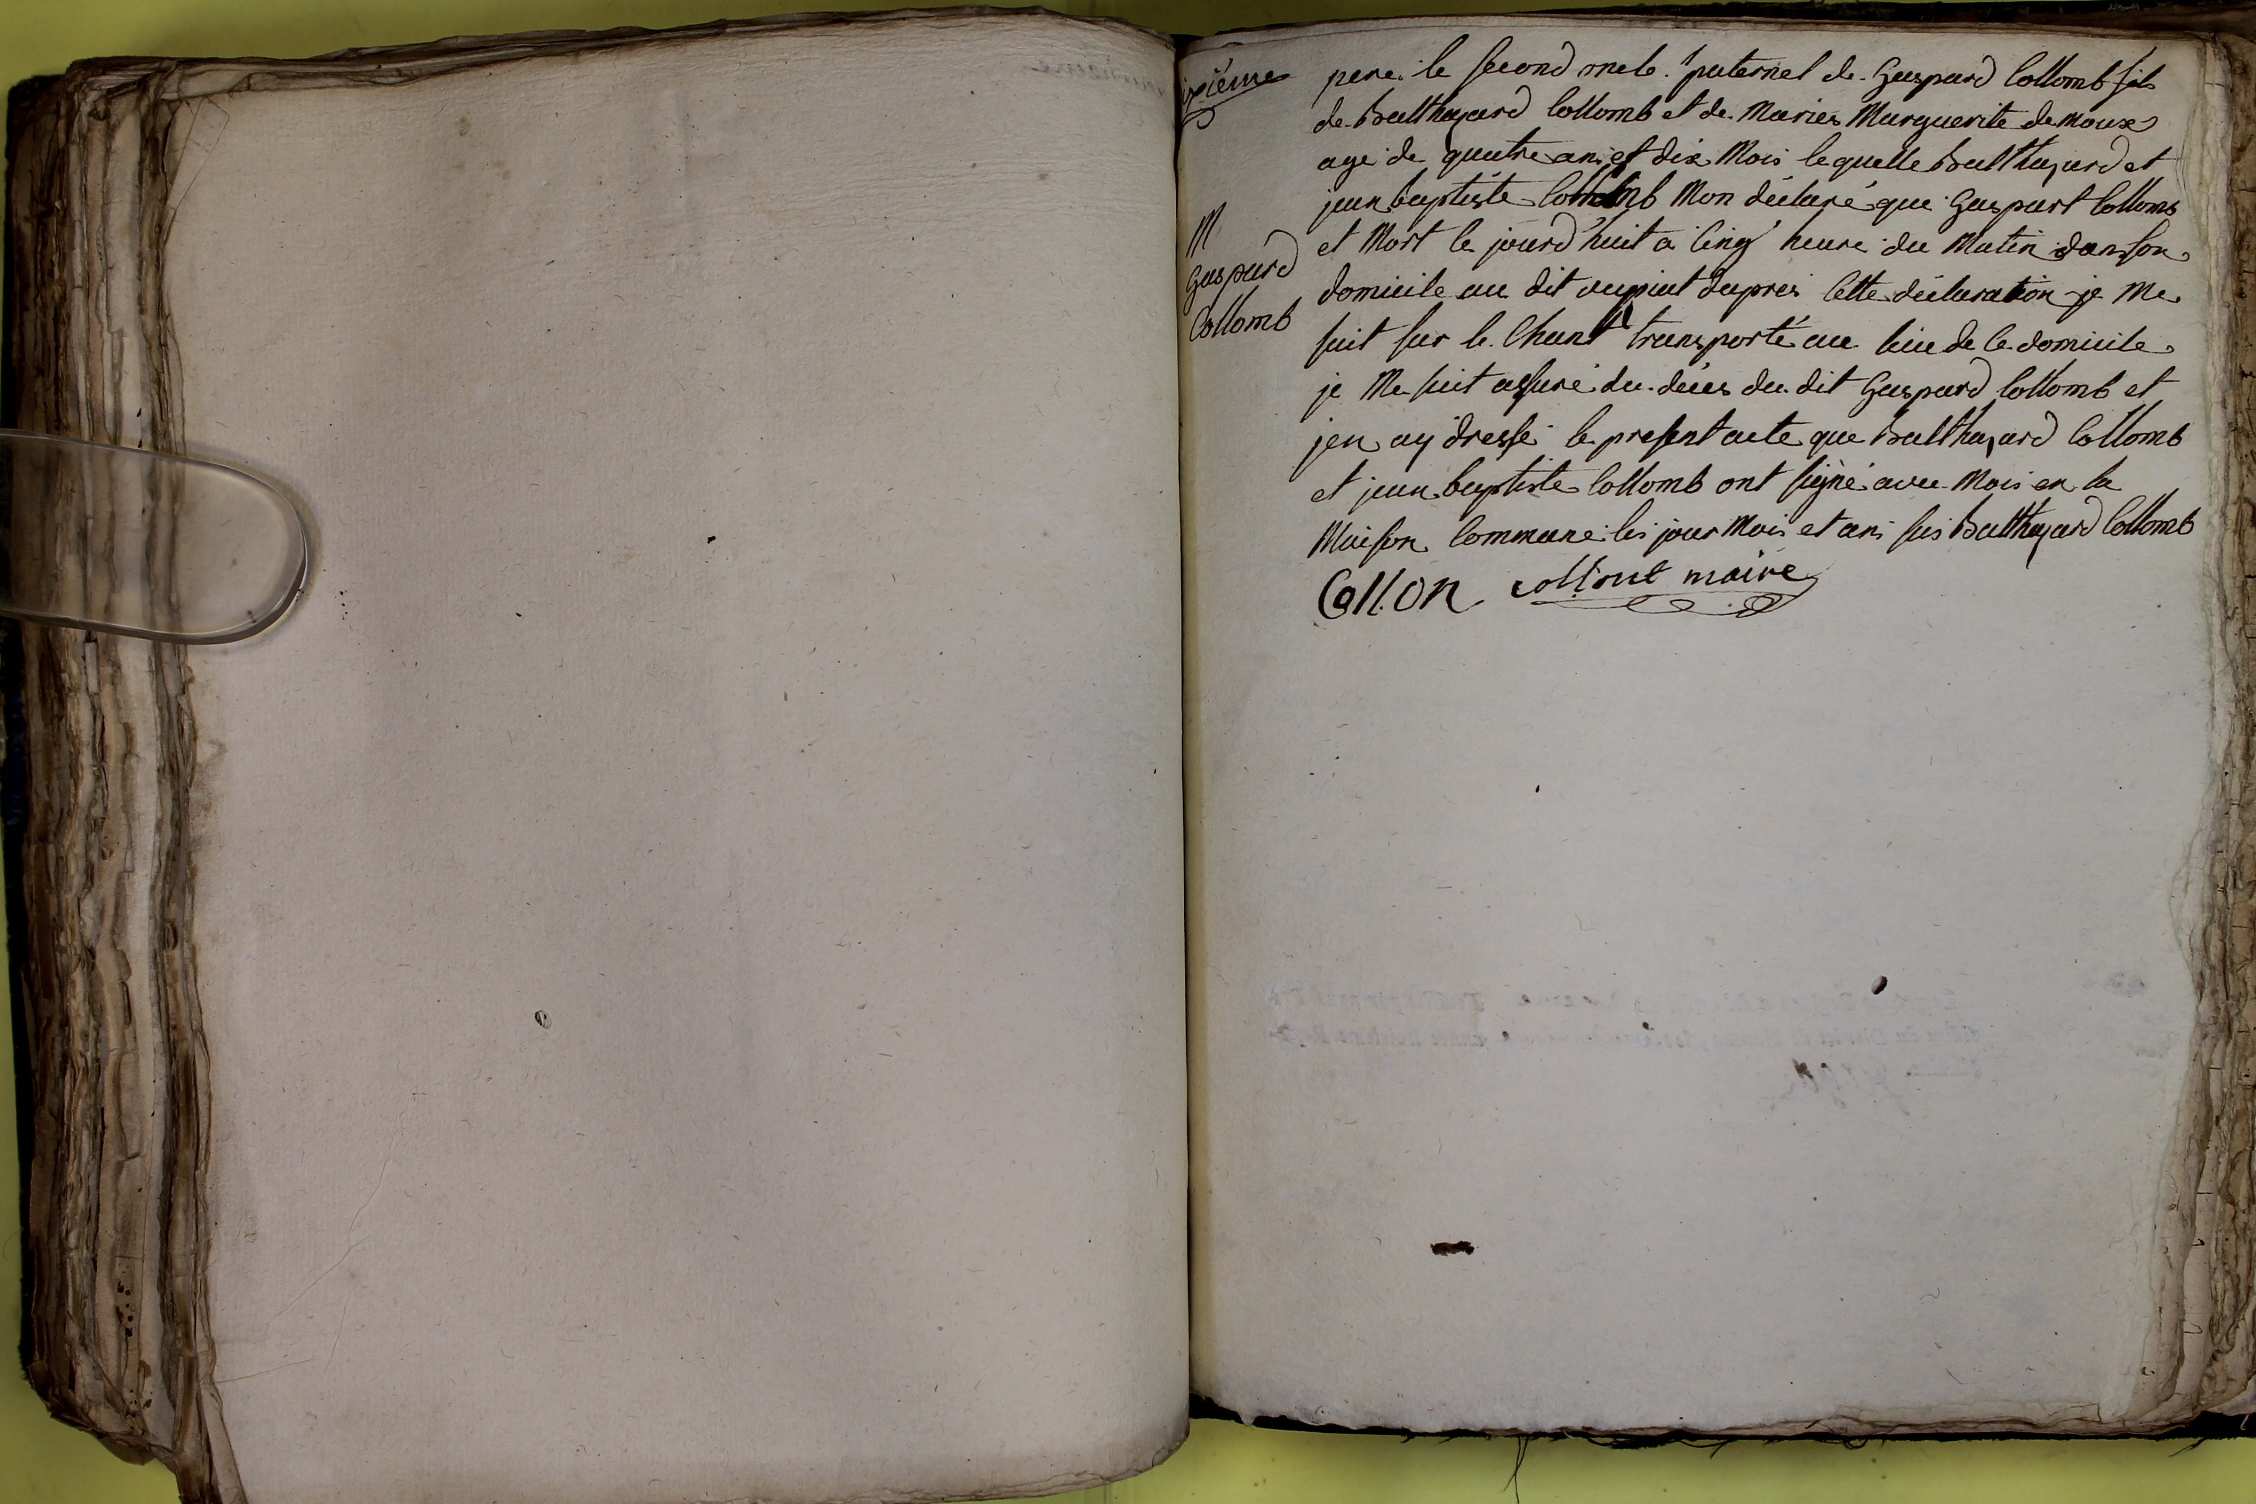 ixiéme
M
Gaspard
Collomb
pere le second oncle paternel de Gaspard Collomb fils
de Balthazard Collomb et de Maries Marguerite demoux
age de quatre ans et dix Mois lequelle Balthazard et
jean baptiste Collomb Mon déclaré que Gaspart Collomb
et Mort le jourd'huit a cinq heure du Matin dans son
domicile au dit dapres Cette déclaration je Me
suit sur le Chant transporté au lieu de ce domicile
je Me suit assuré du déces du dit Gaspard Collomb et
jen ay dressé le present acte que Balthazard Collomb
et jean baptiste Collomb ont signé avec Mois en la
Maison Commune les jour Mois et ans sus Balthazard Collomb
Collon Collont maire